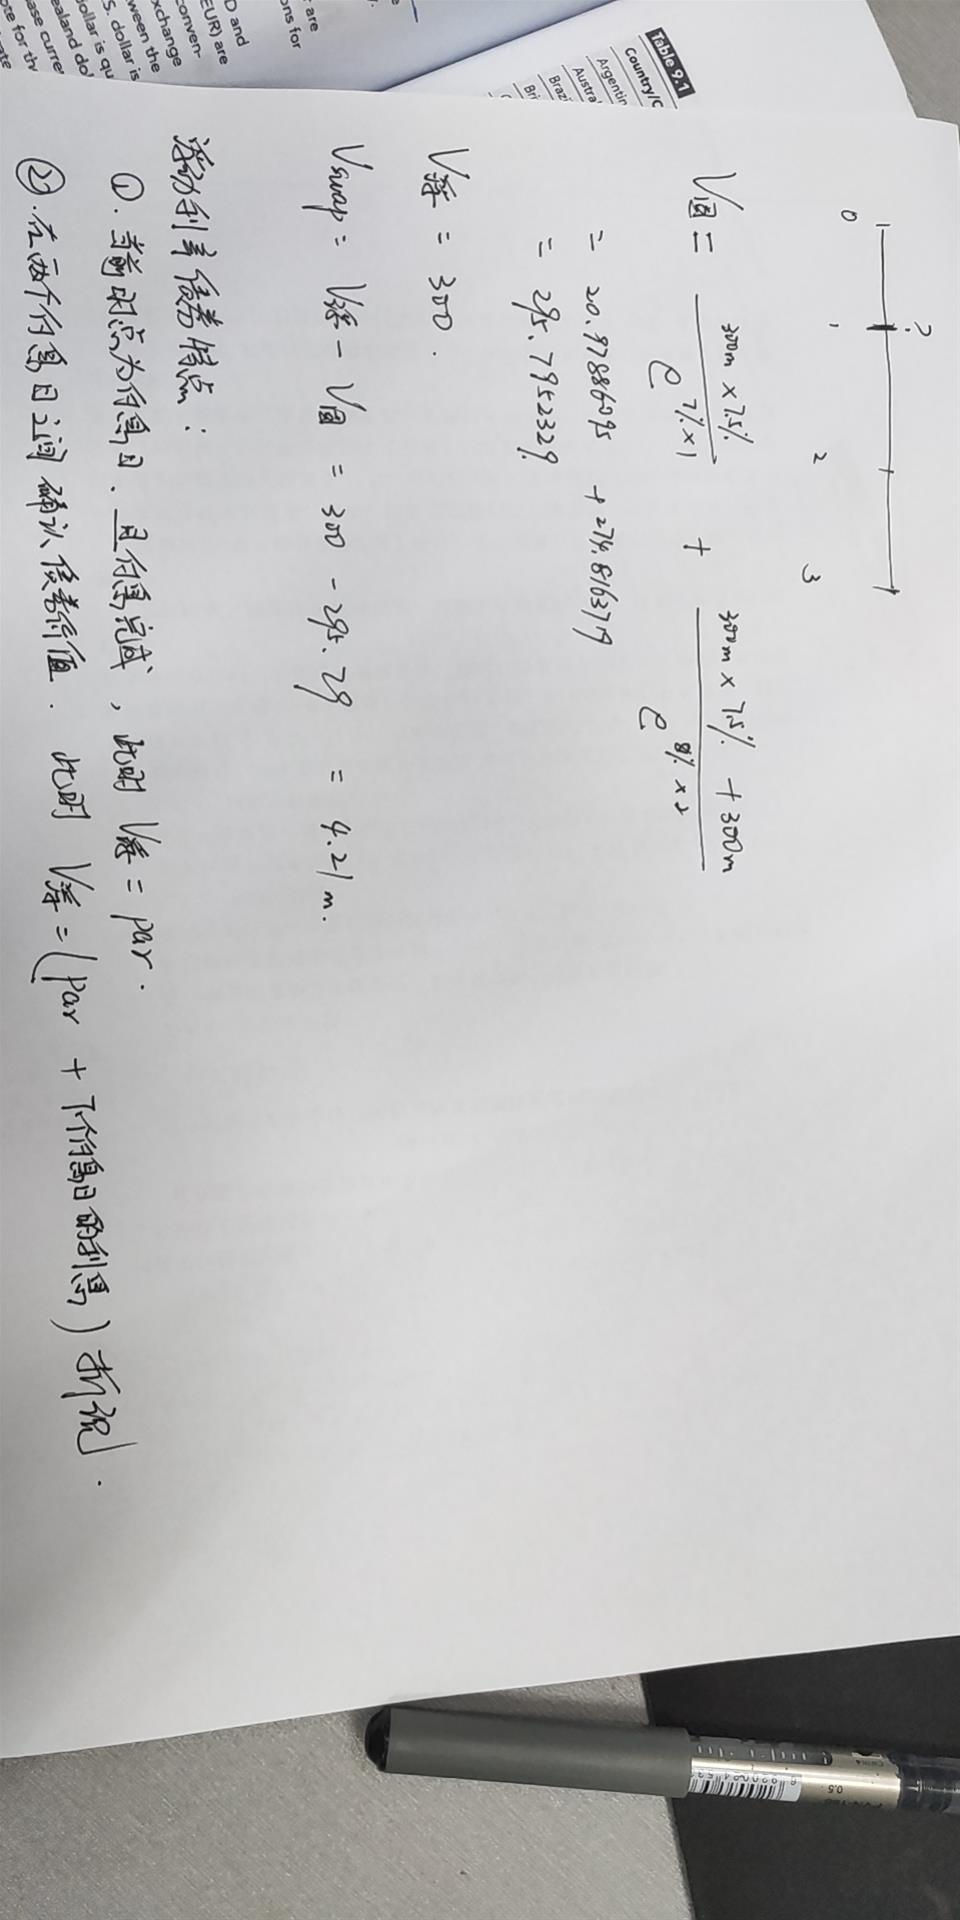 Table 9.1
Country/C
Argentin
Austra
Brazi
Bri
are
ons for
D and
EUR) are
conven-
xchange
ween the
S. dollar is
dollar is qu
ealand dol
ase curre
ote for th
?
0 1 2 3
V固 = 300m × 7.5% / e^7%×1 + 300m × 7.5% + 300m / e^8%×2
= 20.97886095 + 274.8163719
= 295.7952329
V浮 = 300.
Vswap = V浮 - V固 = 300 - 295.79 = 4.21m.
浮动利率债券特点:
①. 当前时点为付息日. 且付息完成, 此时 V浮 = par.
②. 在两个付息日之间确认债券价值. 此时 V浮 = (par + 下个付息日的利息) 折现.
0.5